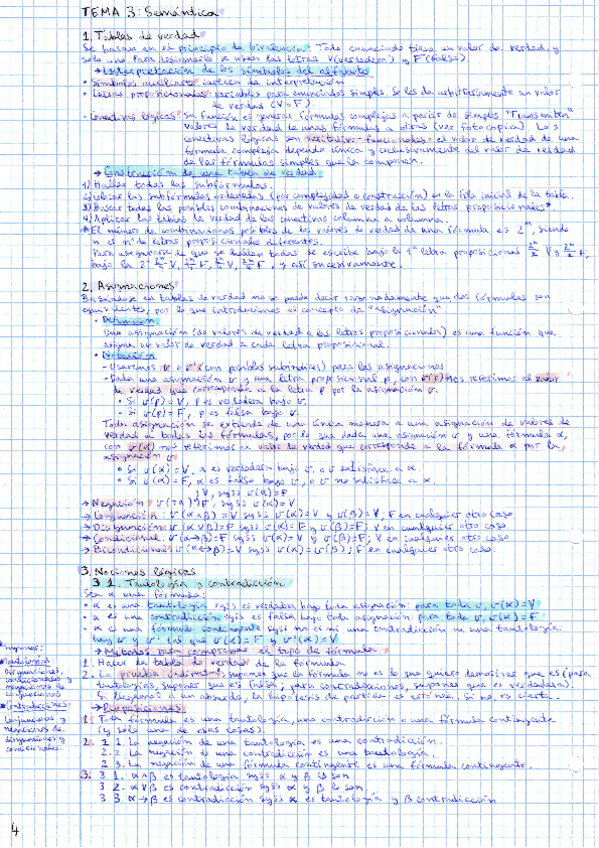 TEMA 3: Semántica
1. Tablas de verdad
Se basan en el principio de bivalencia: Todo enunciado tiene un valor de verdad, y
solo uno. Para designarlos se usan las letras V (verdadero) y F (falso)
→ Interpretación de los símbolos del alfabeto
• Símbolos auxiliares: carecen de interpretación
• Letras proposicionales: variables para enunciados simples. Se les da arbitrariamente un valor
de verdad (V o F).
• Conectivas lógicas: su función es generar fórmulas complejas a partir de simples. "Transmiten"
valores de verdad de unas fórmulas a otras (ver fotocopia). Las
conectivas lógicas son : el valor de verdad de una
fórmula compleja depende única y exclusivamente del valor de verdad
de las fórmulas simples que la componen.
→ Construcción de una tabla de verdad
1) Hallar todas las subfórmulas.
2) Ubicar las subfórmulas ordenadas (por complejidad o construcción) en la fila inicial de la tabla.
3) Buscar todas las posibles combinaciones de valores de verdad de las letras proposicionales*
4) Aplicar las tablas de verdad de las conectivas columna a columna.
* El número de combinaciones posibles de los valores de verdad de una fórmula es 2ⁿ, siendo
n el nº de letras proposicionales diferentes.
Para asegurarse de que se hallan todas se escribe bajo la 1ª letra proposicional 2ⁿ/2 V y 2ⁿ/2 F,
bajo la 2ª 2ⁿ/4 V, 2ⁿ/4 F, 2ⁿ/4 V, 2ⁿ/4 F, y así sucesivamente.
2. Asignaciones
Basándose en tablas de verdad no se puede decir razonadamente que dos fórmulas son
equivalentes, por lo que introducimos el concepto de "asignación".
• Definición
Una asignación (de valores de verdad a las letras proposicionales) es una función que
asigna un valor de verdad a cada letra proposicional.
• Notación
- Usaremos v o v' (con posibles subíndices) para las asignaciones
- Dada una asignación v y una letra proposicional p, con v(p) nos referimos al valor
de verdad que corresponde a la letra p por la asignación v.
• Si v(p)=V, p es verdadera bajo v.
• Si v(p)=F, p es falsa bajo v.
Toda asignación se extiende de una única manera a una asignación de valores de
verdad a todas las fórmulas, por lo que dada una asignación v y una fórmula α,
con v(α) nos referimos al valor de verdad que corresponde a la fórmula α por la
asignación v
• Si v(α)=V, α es verdadera bajo v, o v satisface a α.
• Si v(α)=F, α es falsa bajo v, o v no satisface a α.
V, syss v(α)=F
→ Negación: v(¬α) F, syss v(α)=V
→ Conjunción: v(α∧β)=V syss v(α)=V y v(β)=V; F en cualquier otro caso
→ Disyunción: v(α∨β)=F syss v(α)=F y v(β)=F; V en cualquier otro caso
→ Condicional: v(α→β)=F syss v(α)=V y v(β)=F; V en cualquier otro caso
→ Bicondicional: v(α↔β)=V syss v(α)=v(β); F en cualquier otro caso.
3. Nociones lógicas
3.1. Tautología y contradicción
Sea α una fórmula:
• α es una tautología syss es verdadera bajo toda asignación: para toda v, v(α)=V
• α es una contradicción syss es falsa bajo toda asignación: para toda v, v(α)=F
• α es una fórmula contingente syss no es ni una contradicción ni una tautología:
hay v y v' tal que v(α)=F y v'(α)=V
→ Métodos para comprobar el tipo de fórmula
1. Hacer la tabla de verdad de la fórmula
2. La prueba indirecta: supongo que la fórmula no es lo que quiero demostrar que es (para
tautologías, suponer que es falsa; para contradicciones, suponer que es verdadera).
Si llegamos a un absurdo, la hipótesis de partida es errónea. Si no, es cierta.
→ Proposiciones
1. Toda fórmula es una tautología, una contradicción o una fórmula contingente
(y solo una de esas cosas).
2. 2.1. La negación de una tautología es una contradicción.
2.2. La negación de una contradicción es una tautología.
2.3. La negación de una fórmula contingente es una fórmula contingente.
3. 3.1. α∧β es tautología syss α y β lo son
3.2. α∨β es contradicción syss α y β lo son
3.3. α→β es contradicción syss α es tautología y β contradicción
condicionales y
negaciones de
conjunciones
Contradicciones:
Conjunciones y
negaciones de
disyunciones y
condicionales.
4